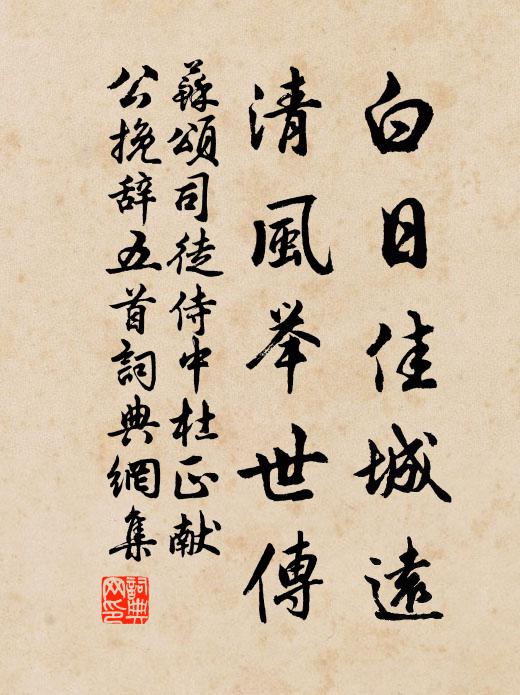 白日佳城遠
清風举世傳
蘇頌司徒侍中杜正献
公挽辞五首詞典網集
詞典網印